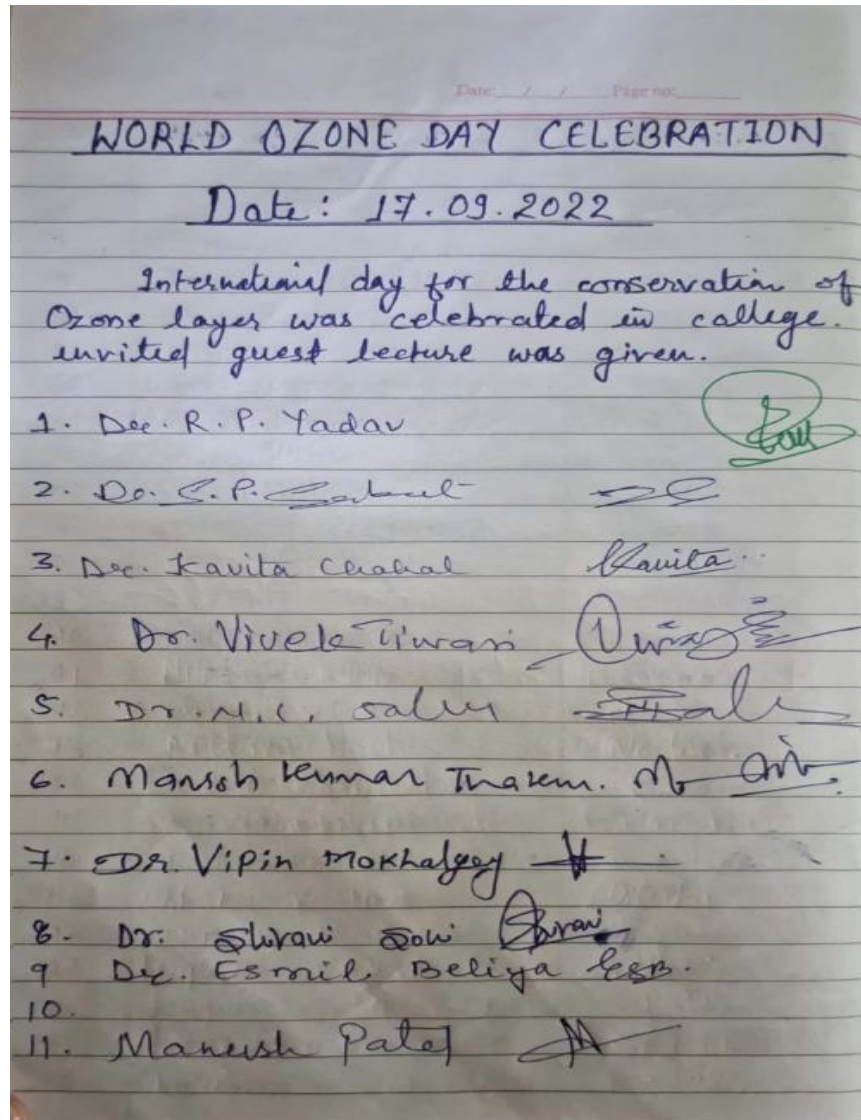 Date: / / Page no:
WORLD OZONE DAY CELEBRATION
Date: 17.09.2022
International day for the conservation of
Ozone layer was celebrated in college.
invited guest lecture was given.
1. Dr. R. P. Yadav
2. Dr. S. P.
3. Dr. Kavita Chahal Kavita
4. Dr. Vivek Tiwari
5. Dr. N. C. Sahu
6. Manish Kumar
7. Dr. Vipin
8. Dr. Shivani Soni Shivani
9 Dr. Esmil Beliya ESB.
10.
11. Maneesh Patel